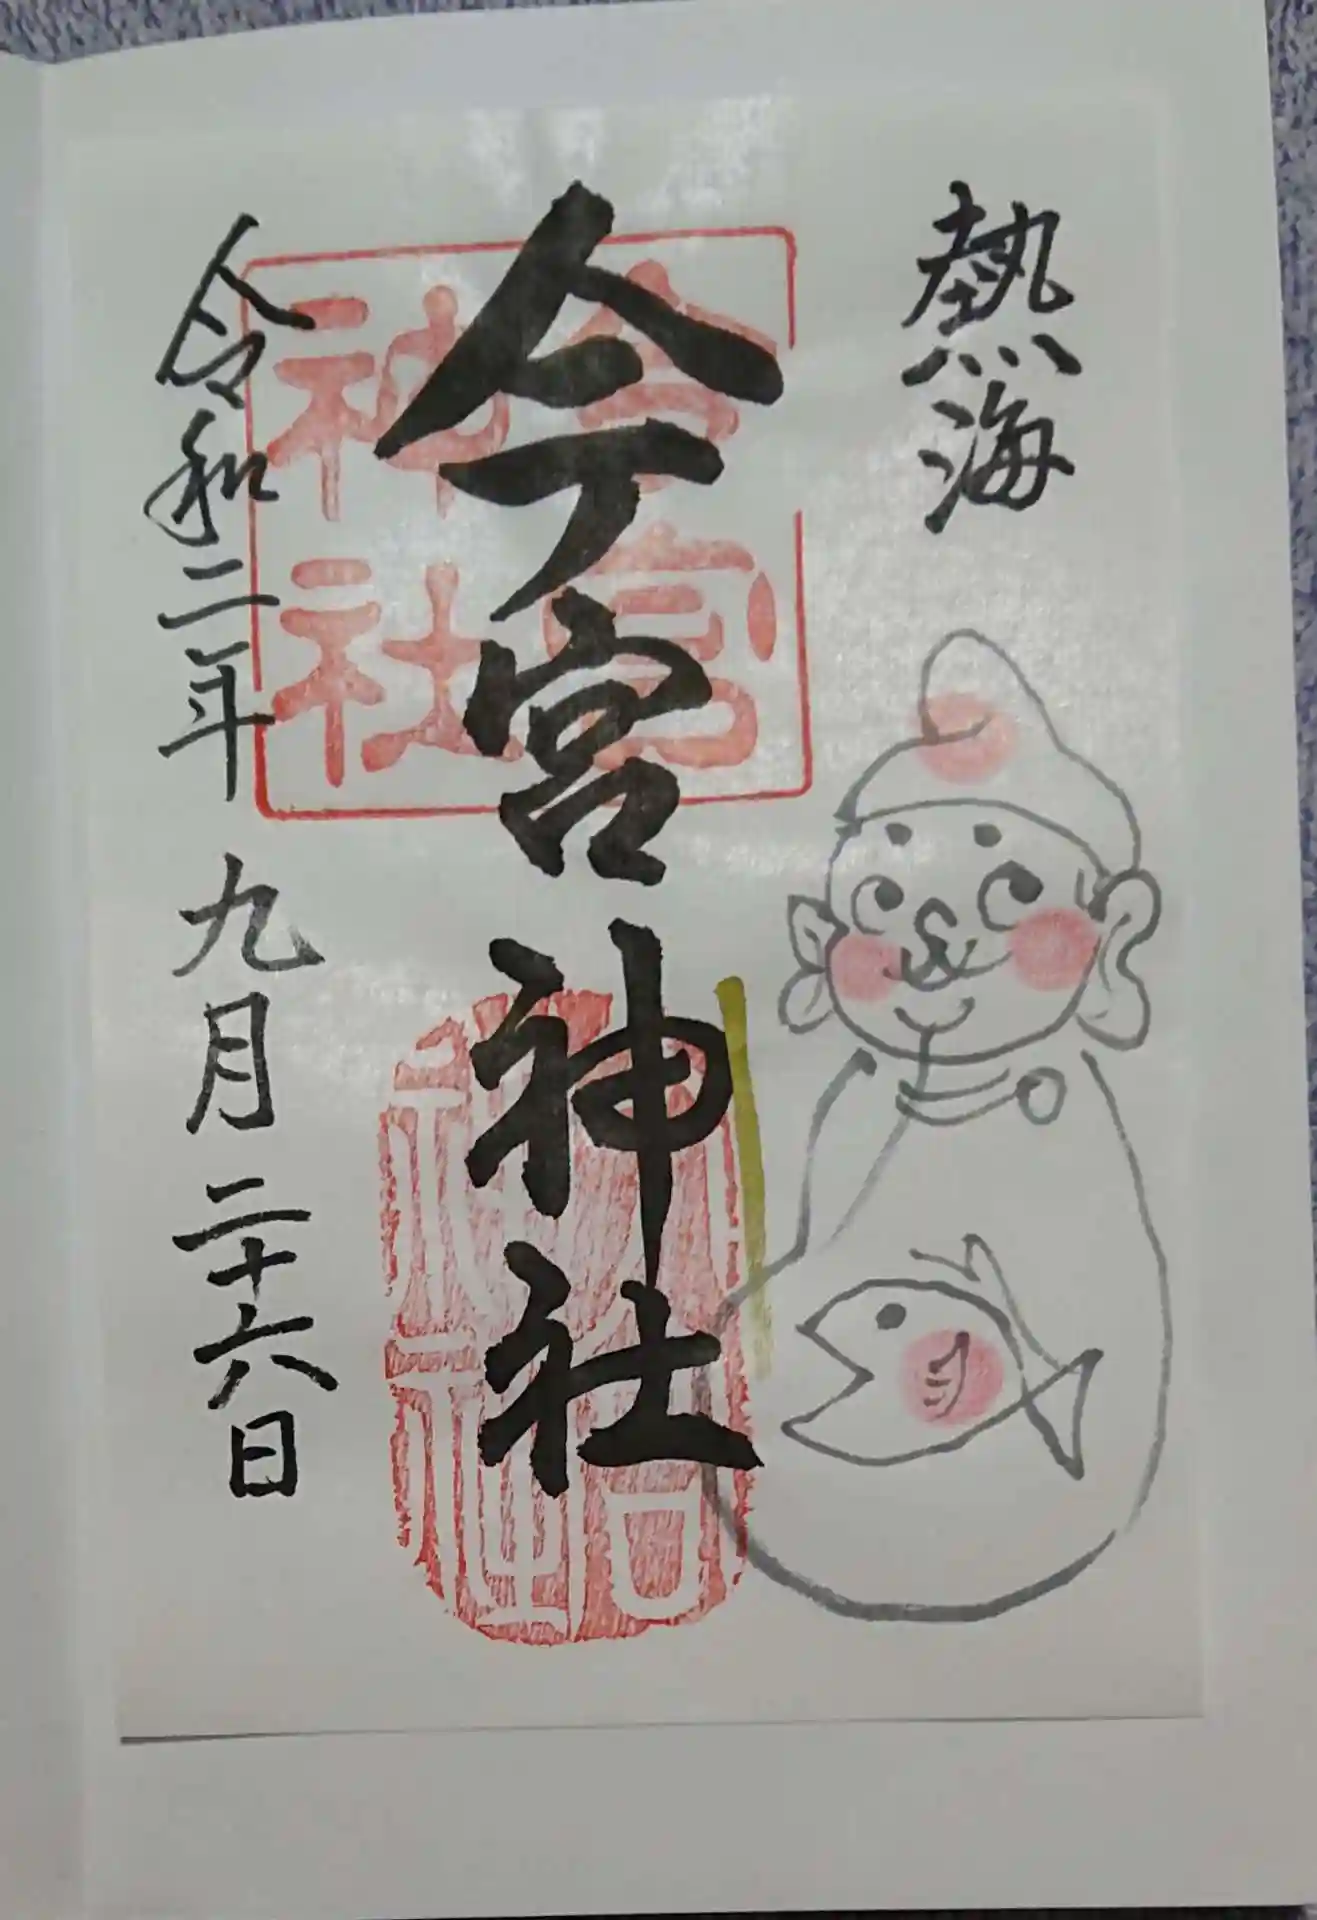 熱海
今宮神社
今宮
神社
令和二年九月二十六日